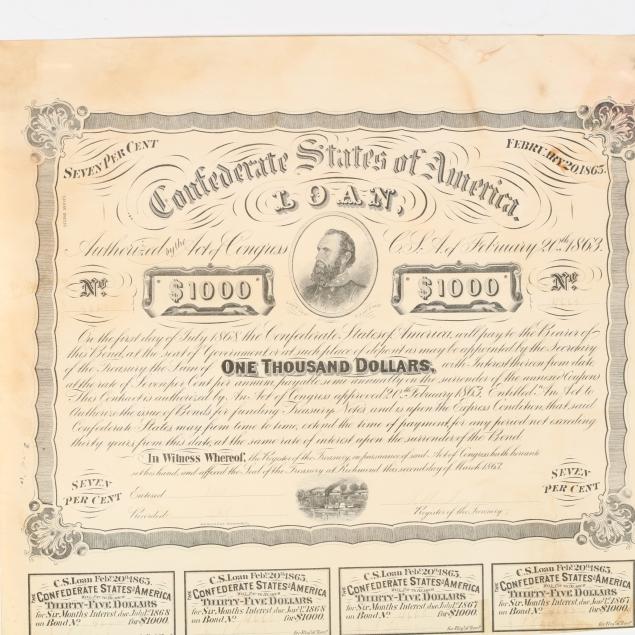 SEVEN PER CENT
FEBRUARY 20, 1863.
Confederate States of America.
LOAN,
Authorized by the Act of Congress C.S.A. of February 20th 1863.
No.
$1000
$1000
No.
On the first day of July 1868, the Confederate States of America, will pay to the Bearer of
this Bond, at the seat of Government or at such place of deposit as may be appointed by the Secretary
of the Treasury, the Sum of ONE THOUSAND DOLLARS, with Interest thereon from date
at the rate of Seven per Cent per annum payable semi annually on the surrender of the annexed Coupons
This Contract is authorized by An Act of Congress approved 20th February 1863. Entitled "An Act to
Authorize the issue of Bonds for funding Treasury Notes" and is upon the Express Condition, that said
Confederate States may from time to time, extend the time of payment for any period not exceeding
thirty years from this date, at the same rate of interest upon the surrender of the Bond.
In Witness Whereof, the Register of the Treasury, in pursuance of said Act of Congress hath hereunto
set his hand, and affixed the Seal of the Treasury at Richmond, this second day of March 1863.
SEVEN
PER CENT
SEVEN
PER CENT
Entered
Recorded
Register of the Treasury.
C.S. Loan Feby. 20th 1863.
THE CONFEDERATE STATES OF AMERICA
WILL PAY TO BEARER
THIRTY-FIVE DOLLARS
for Six Months Interest due July 1st 1868
on Bond No. for $1000.
C.S. Loan Feby. 20th 1863.
THE CONFEDERATE STATES OF AMERICA
WILL PAY TO BEARER
THIRTY-FIVE DOLLARS
for Six Months Interest due Jany. 1st 1868
on Bond No. for $1000.
C.S. Loan Feby. 20th 1863.
THE CONFEDERATE STATES OF AMERICA
WILL PAY TO BEARER
THIRTY-FIVE DOLLARS
for Six Months Interest due July 1st 1867
on Bond No. for $1000.
for Regr. of Treasy.
C.S. Loan Feby. 20th 1863.
THE CONFEDERATE STATES OF AMERICA
WILL PAY TO BEARER
THIRTY-FIVE DOLLARS
for Six Months Interest due Jany. 1st 1867
on Bond No. for $1000.
for Regr. of Treasy.